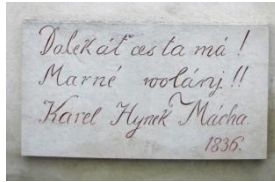 Daleká ť cesta má !
Marné wolánj !!
Karel Hynek Mácha.
1836.